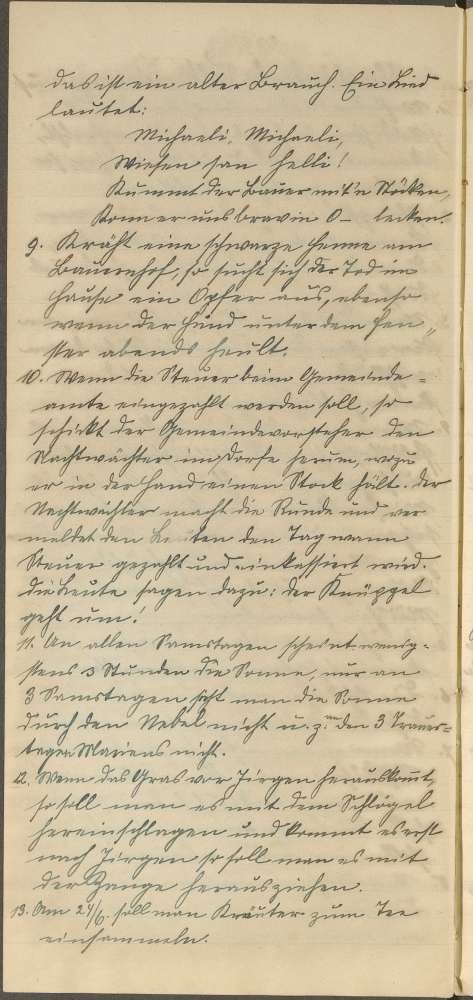 das ist ein alter Brauch. Ein Lied
lautet:
Michaeli, Michaeli,
Wiesen san helli!
Kummt der Bauer mit'n Stöcken,
Konn er uns brav in O– lecken.
9. Kräht eine schwarze Henne am
Bauernhof, so sucht sich der Tod im
Hause ein Opfer aus, ebenso
wenn der Hund unter dem Fen„
ster abends heult.
10. Wenn die Steuer beim Gemeinde=
amte eingezahlt werden soll, so
schickt der Gemeindevorsteher den
Nachtwächter im Dorfe herum, wozu
er in der Hand einen Stock hält. Der
Nachtwächter macht die Runde und ver
meldet den Leuten den Tag wann
Steuer gezahlt und einkassiert wird.
Die Leute sagen dazu: der Knüppel
geht um!
11. An allen Samstagen scheint wenig=
stens 3 Stunden die Sonne, nur an
3 Samstagen sieht man die Sonne
durch den Nebel nicht u. z. den 3 Trauer=
tagen Mariens nicht.
12. Wenn das Gras vor Jirgen herauskommt,
so soll man es mit dem Schlögel
hereinschlagen und kommt es erst
nach Jirgen so soll man es mit
der Zange herausziehen.
13. Am 24/6. soll man Kräuter zum Tee
einsammeln.